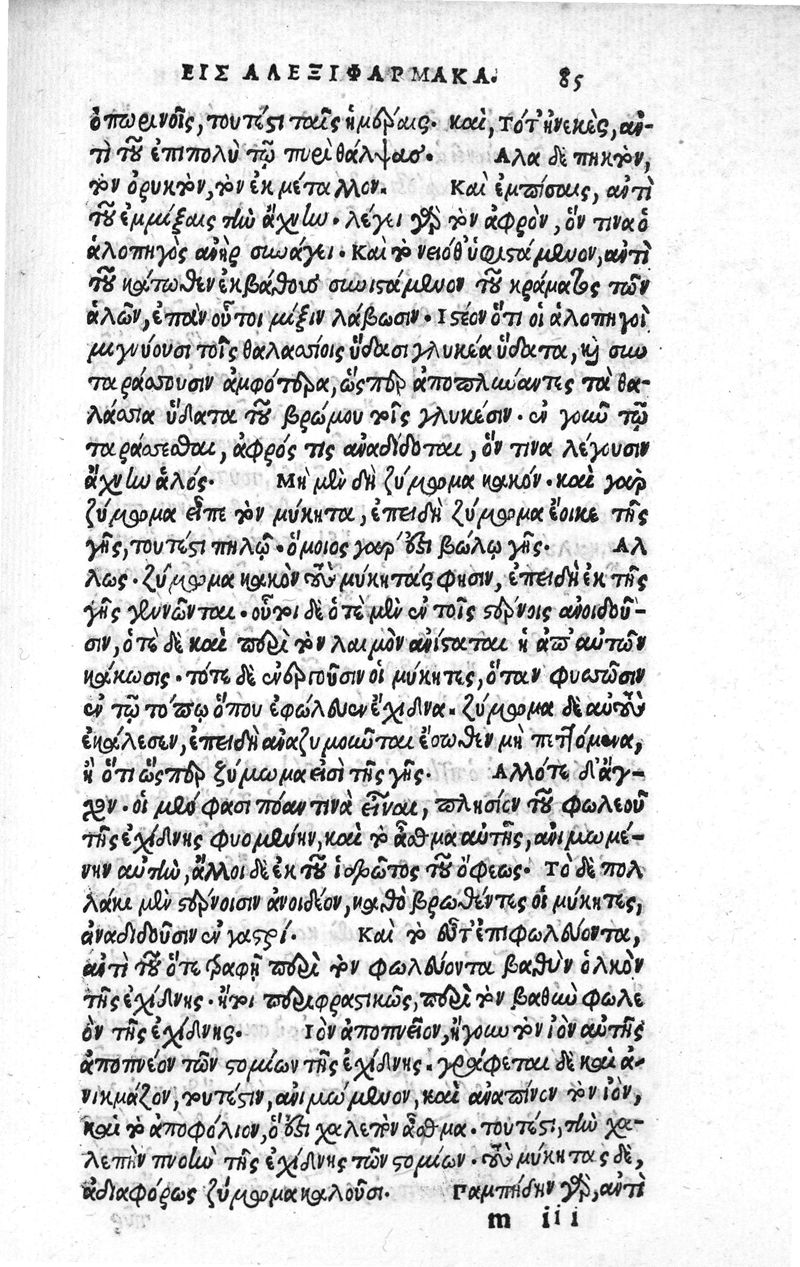 ΕΙΣ ΑΛΕΞΙΦΑΡΜΑΚΑ. 85
ὀπωρινοῖς, τουτέστι ταῖς ἡμέραις. καὶ, Τότ' ἠνεκὲς, ἀν-
τὶ τοῦ ἐπιπολὺ τῷ πυρὶ θάλψας. Αλα δὲ πηκτὸν,
τὸν ὀρυκτὸν, τὸν ἐκ μετάλλον. Καὶ ἐμπίσαις, ἀντὶ
τοῦ ἐμμίξαις τὴν ἄχνην. λέγει γὰρ τὸν ἀφρὸν, ὅν τινα ὁ
ἁλοπηγὸς ἀνὴρ συνάγει. Καὶ τὸ νειόθ' ὑφιστάμενον, ἀντὶ
τοῦ κάτωθεν ἐκ βάθους συνιστάμενον τοῦ κράματος τῶν
ἁλῶν, ἐπὰν οὗτοι μίξιν λάβωσιν. Ιστέον ὅτι οἱ ἁλοπηγοὶ
μιγνύουσι τοῖς θαλασσίοις ὕδασι γλυκέα ὕδατα, καὶ συν
ταράσσουσιν ἀμφότερα, ὥσπερ ἀποπλύναντες τὰ θα-
λάσσια ὕδατα τοῦ βρώμου τοῖς γλυκέσιν. ἐν γοῦν τῷ
ταράσσεσθαι, ἀφρός τις ἀναδίδοται, ὅν τινα λέγουσιν
ἄχνην ἁλός. Μὴ μὲν δὴ ζύμωμα κακόν. καὶ γὰρ
ζύμωμα εἶπε τὸν μύκητα, ἐπειδὴ ζύμωμα ἔοικε τῆς
γῆς, τουτέστι πηλῷ. ὅμοιος γάρ ἐστι βώλῳ γῆς. Αλ
λως. ζύμωμα κακὸν τοὺς μύκητάς φησιν, ἐπειδὴ ἐκ τῆς
γῆς γεννῶνται. οὗτοι δὲ ὁτὲ μὲν ἐν τοῖς στέρνοις ἀνοιδοῦ-
σιν, ὁτὲ δὲ καὶ περὶ τὸν λαιμὸν ἀνίσταται ἡ ἀπ' αὐτῶν
κάκωσις. τότε δὲ ἐνεργοῦσιν οἱ μύκητες, ὅταν φυσῶσιν
ἐν τῷ τόπῳ ὅπου ἐφώλευεν ἔχιδνα. ζύμωμα δὲ αὐτοὺς
ἐκάλεσεν, ἐπειδὴ ἀναζυμοῦνται ἔσωθεν μὴ πεττόμενα,
ἢ ὅτι ὥσπερ ζύμωμα εἰσὶ τῆς γῆς. Αλλότε δ' ἄγ-
χον. οἱ μὲν φασι πόαν τινὰ εἶναι, πλησίον τοῦ φωλεοῦ
τῆς ἐχίδνης φυομένην, καὶ τὸ ἆσθμα αὐτῆς, ἀνιμωμέ-
νην αὐτὴν, ἄλλοι δὲ ἐκ τοῦ ἱδρῶτος τοῦ ὄφεως. Τὸ δὲ πολ
λάκι μὲν στέρνοισιν ἀνοιδέον, καθὸ βρωθέντες οἱ μύκητες,
ἀναδιδοῦσιν ἐν γαστρί. Καὶ τὸ εὖτ' ἐπιφωλεύοντα,
ἀντὶ τοῦ ὅτε τραφῇ περὶ τὸν φωλεύοντα βαθὺν ὁλκὸν
τῆς ἐχίδνης. ἤτοι περιφραστικῶς, περὶ τὸν βαθὺν φωλε
ὸν τῆς ἐχίδνης. Ιὸν ἀποπνεῖον, ἤγουν τὸν ἰὸν αὐτῆς
ἀποπνέον τῶν στομίων τῆς ἐχίδνης. γράφεται δὲ καὶ ἀ-
νικμάζον, τουτέστιν, ἀνιμώμενον, καὶ ἀναπίνον τὸν ἰὸν,
καὶ τὸ ἀποφώλιον, ὅ ἐστι χαλεπὸν ἆσθμα. τουτέστι, τὴν χα-
λεπὴν πνοὴν τῆς ἐχίδνης τῶν στομίων. τοὺς μύκητας δὲ,
ἀδιαφόρως ζύμωμα καλοῦσι. Γαμπήδην γὰρ, ἀντὶ
m iii